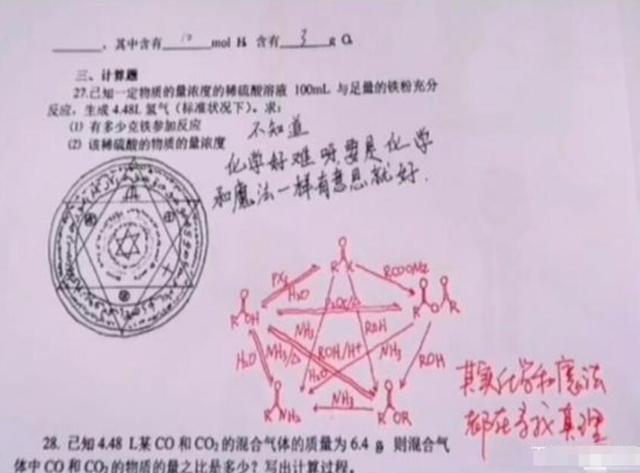 ______，其中含有 10 mol H. 含有 3 g O.
三、计算题
27.已知一定物质的量浓度的稀硫酸溶液 100mL 与足量的铁粉充分
反应，生成4.48L氢气（标准状况下）。求：
(1) 有多少克铁参加反应
(2) 该稀硫酸的物质的量浓度
不知道
化学好难呀要是化学
和魔法一样有意思就好.
O
R X
PX₃
H₂O
RCOONa
O
R OH
O O
R O R
NH₃
ROH
H₂O
NH₃/Δ
ROH/H⁺
H₂O
NH₃
ROH
O
R NH₂
NH₃
O
R OR
其实化学和魔法
都在寻找真理
28. 已知 4.48 L某 CO 和 CO₂ 的混合气体的质量为 6.4 g 则混合气
体中 CO 和 CO₂ 的物质的量之比是多少？写出计算过程。